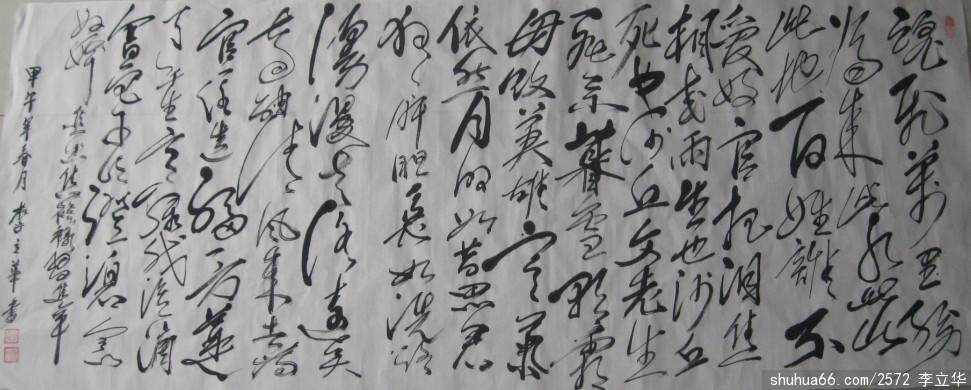 魂飞万里盼
归来此水此山
此地百姓谁不
爱好官把泪焦
桐成雨生也沙丘
死也沙丘父老生
死系暮雪朝霜
毋改英雄意气
依然月明如昔思君
夜夜肝胆长如洗路
漫漫其修远矣
两袖清风来去为
官一任造福一方遂
了平生意绿我涓滴
会它千顷澄碧念
奴娇追思焦裕禄習近平
甲午年春月李立华书
shuhua66.com/2572 李立华